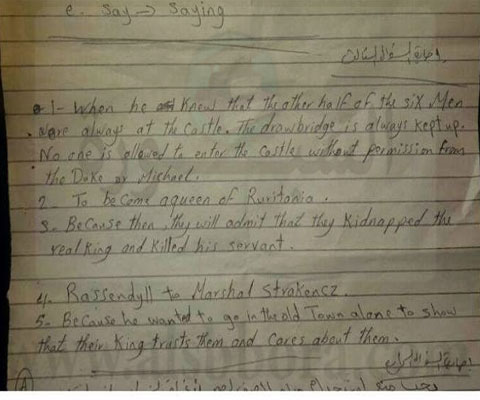 e. Say → Saying
إجابة السؤال الثالث
1- When he Knew that the other half of the six Men
are always at the Castle. The drawbridge is always kept up.
No one is allowed to enter the Castle without permission from
the Duke or Michael.
2. To become aqueen of Ruritania.
3- Because then, they will admit that they Kidnapped the
real King and Killed his servant.
4. Rassendyll to Marshal Strakencz.
5- Because he wanted to go in the old Town alone to show
that their King trusts them and Cares about them.
(A)